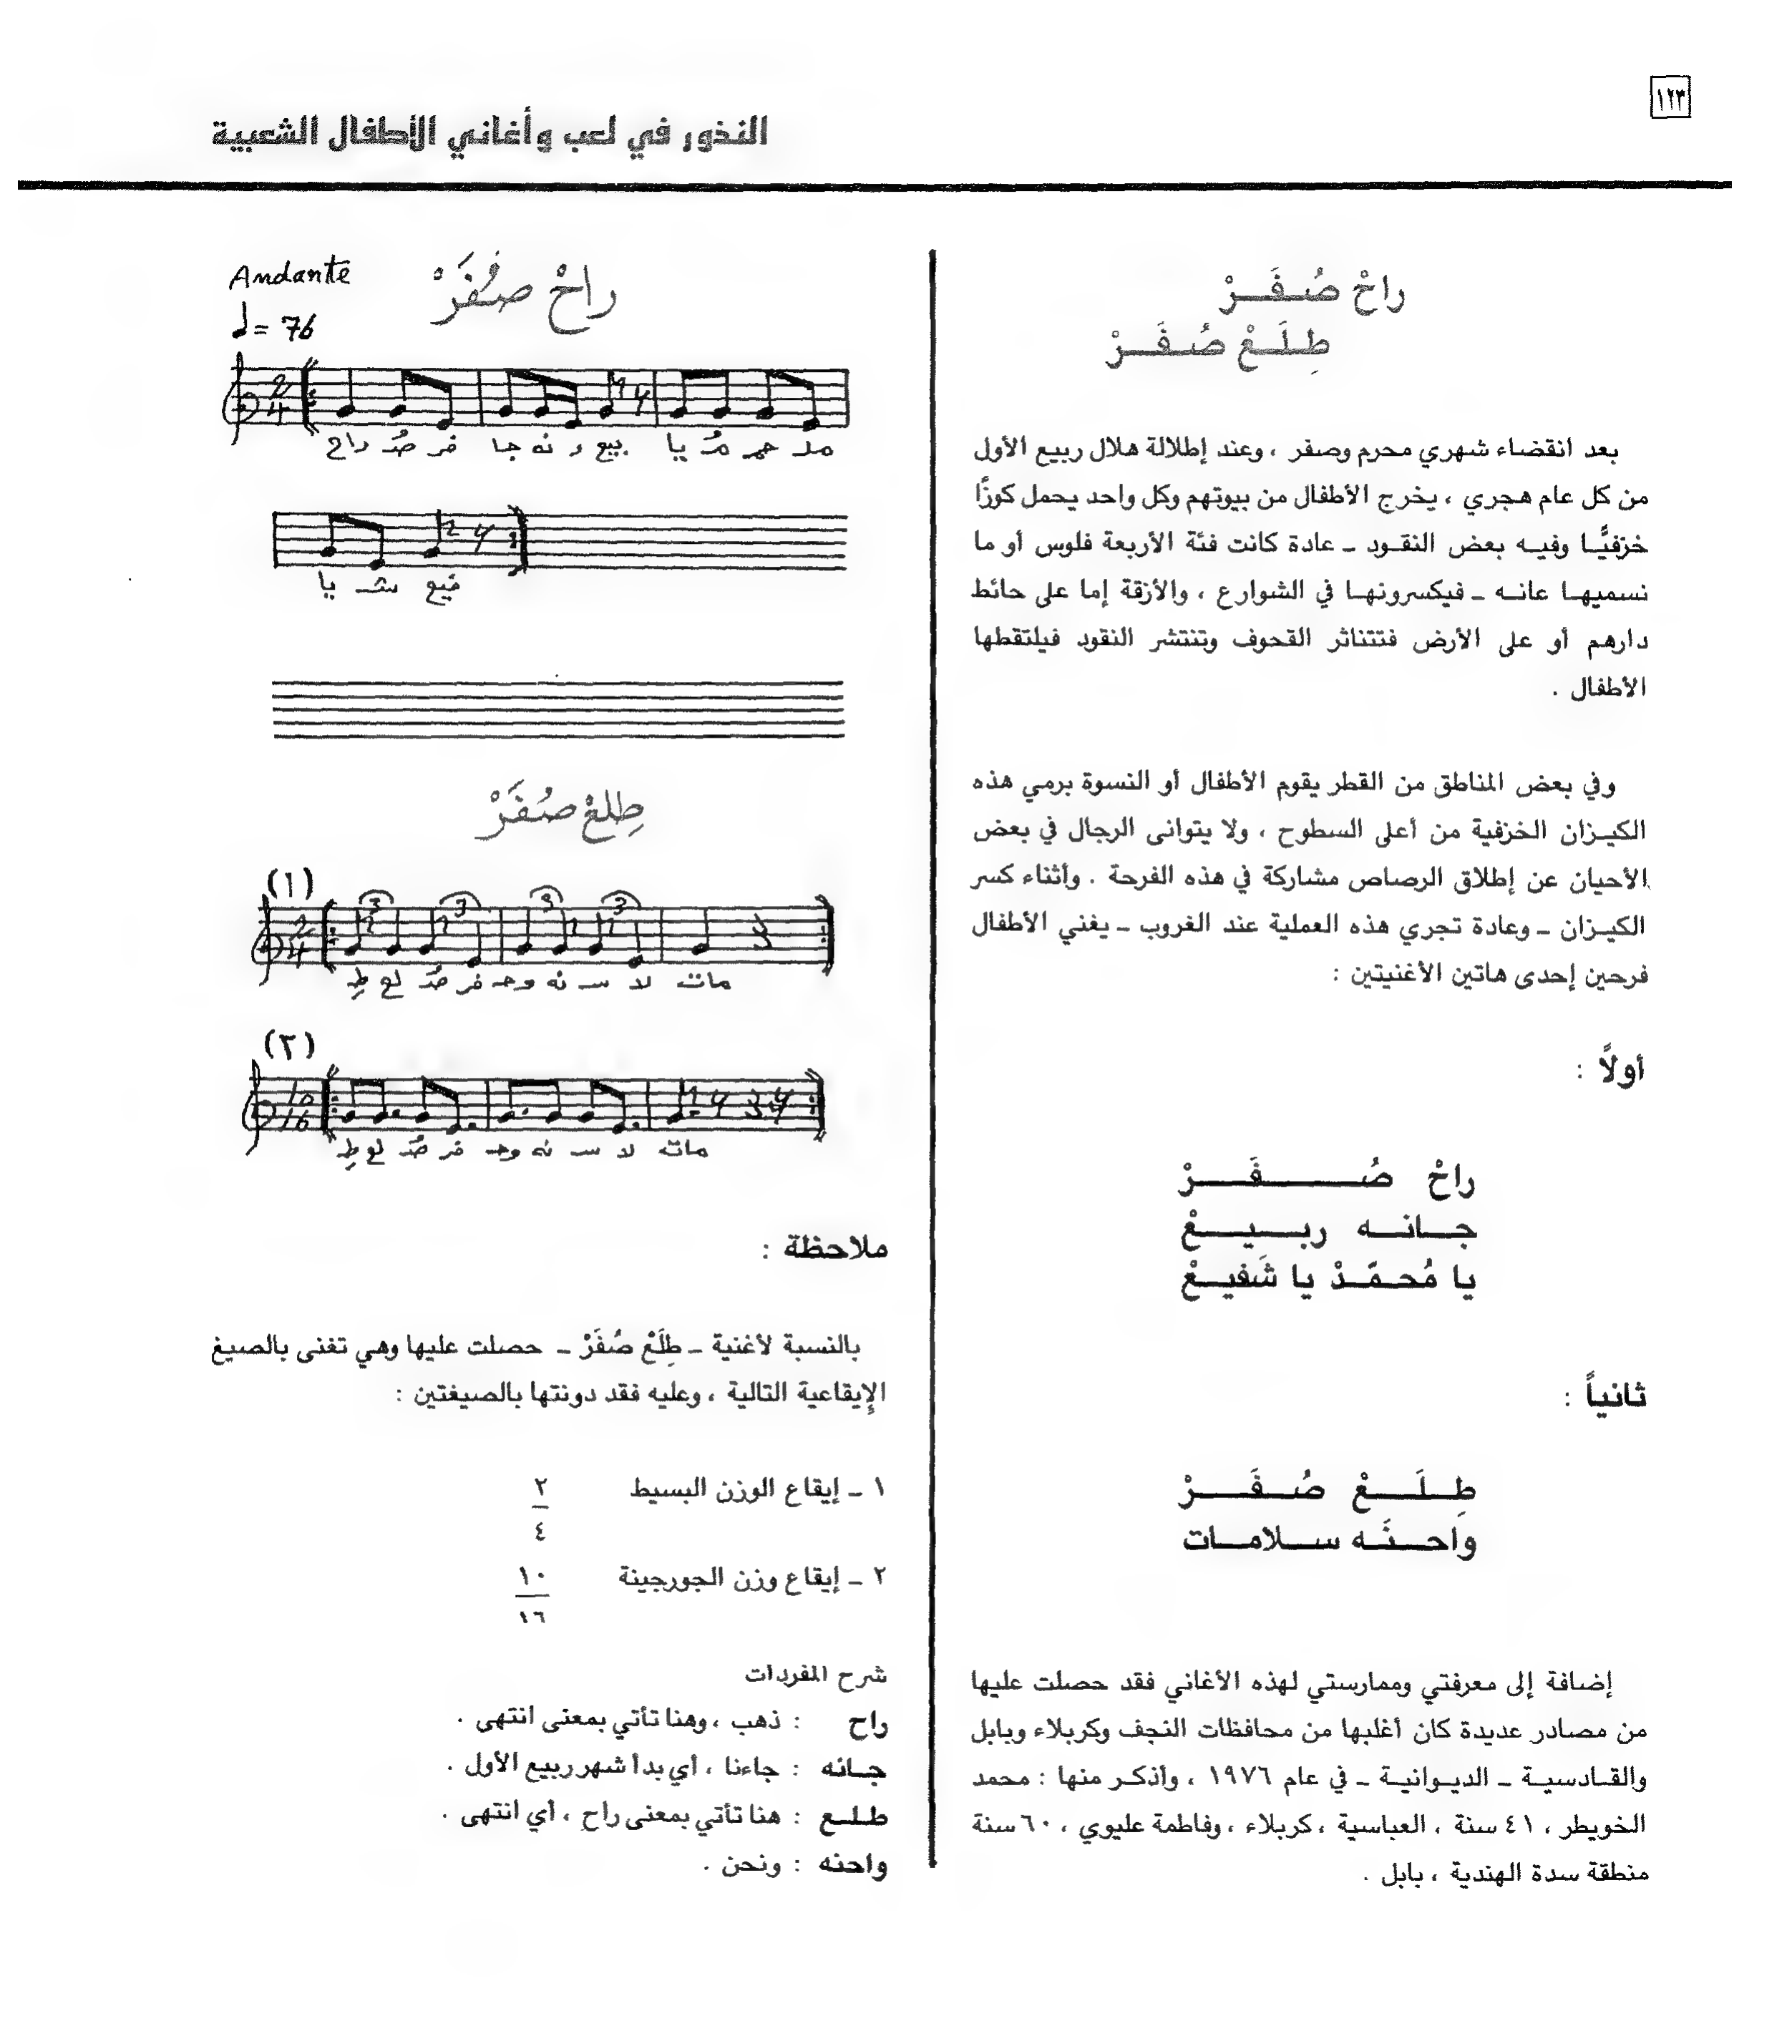 ١٢٣
النذور في لعب وأغاني الأطفال الشعبية
راحْ صُفَرْ
طِلَعْ صُفَرْ
بعد انقضاء شهري محرم وصفر ، وعند إطلالة هلال ربيع الأول
من كل عام هجري ، يخرج الأطفال من بيوتهم وكل واحد يحمل كوزًا
خزفيًّا وفيه بعض النقود ـ عادة كانت فئة الأربعة فلوس أو ما
نسميها عانه ـ فيكسرونها في الشوارع ، والأزقة إما على حائط
دارهم أو على الأرض فتتناثر القحوف وتنتشر النقود فيلتقطها
الأطفال .
وفي بعض المناطق من القطر يقوم الأطفال أو النسوة برمي هذه
الكيزان الخزفية من أعلى السطوح ، ولا يتوانى الرجال في بعض
الأحيان عن إطلاق الرصاص مشاركة في هذه الفرحة . وأثناء كسر
الكيزان ـ وعادة تجري هذه العملية عند الغروب ـ يغني الأطفال
فرحين إحدى هاتين الأغنيتين :
أولاً :
راحْ صُفَرْ
جانه ربيعْ
يا مُحمَّدْ يا شَفيعْ
ثانياً :
طِلَعْ صُفَرْ
واحنَه سلامات
إضافة إلى معرفتي وممارستي لهذه الأغاني فقد حصلت عليها
من مصادر عديدة كان أغلبها من محافظات النجف وكربلاء وبابل
والقادسية ـ الديوانية ـ في عام ١٩٧٦ ، وأذكر منها : محمد
الخويطر ، ٤١ سنة ، العباسية ، كربلاء ، وفاطمة عليوي ، ٦٠ سنة
منطقة سدة الهندية ، بابل .
Andante
راحْ صُفَرْ
♩= 76
2/4
راح صُـ فر جا نه ر بيع يا مُـ حمـ ملـ
يا شـ فيع
طِلعْ صُفَرْ
(١)
2/4 3 3 3 3
طِـ لع صُـ فر وحـ نه سـ لا مات
(٢)
10/16
طِـ لع صُـ فر وحـ نه سـ لا مات
ملاحظة :
بالنسبة لأغنية ـ طِلَعْ صُفَرْ ـ حصلت عليها وهي تغنى بالصيغ
الإيقاعية التالية ، وعليه فقد دونتها بالصيغتين :
١ ـ إيقاع الوزن البسيط ٢
٤
٢ ـ إيقاع وزن الجورجينة ١٠
١٦
شرح المفردات
راح : ذهب ، وهنا تأتي بمعنى انتهى .
جانه : جاءنا ، أي بدأ شهر ربيع الأول .
طلع : هنا تأتي بمعنى راح ، أي انتهى .
واحنه : ونحن .